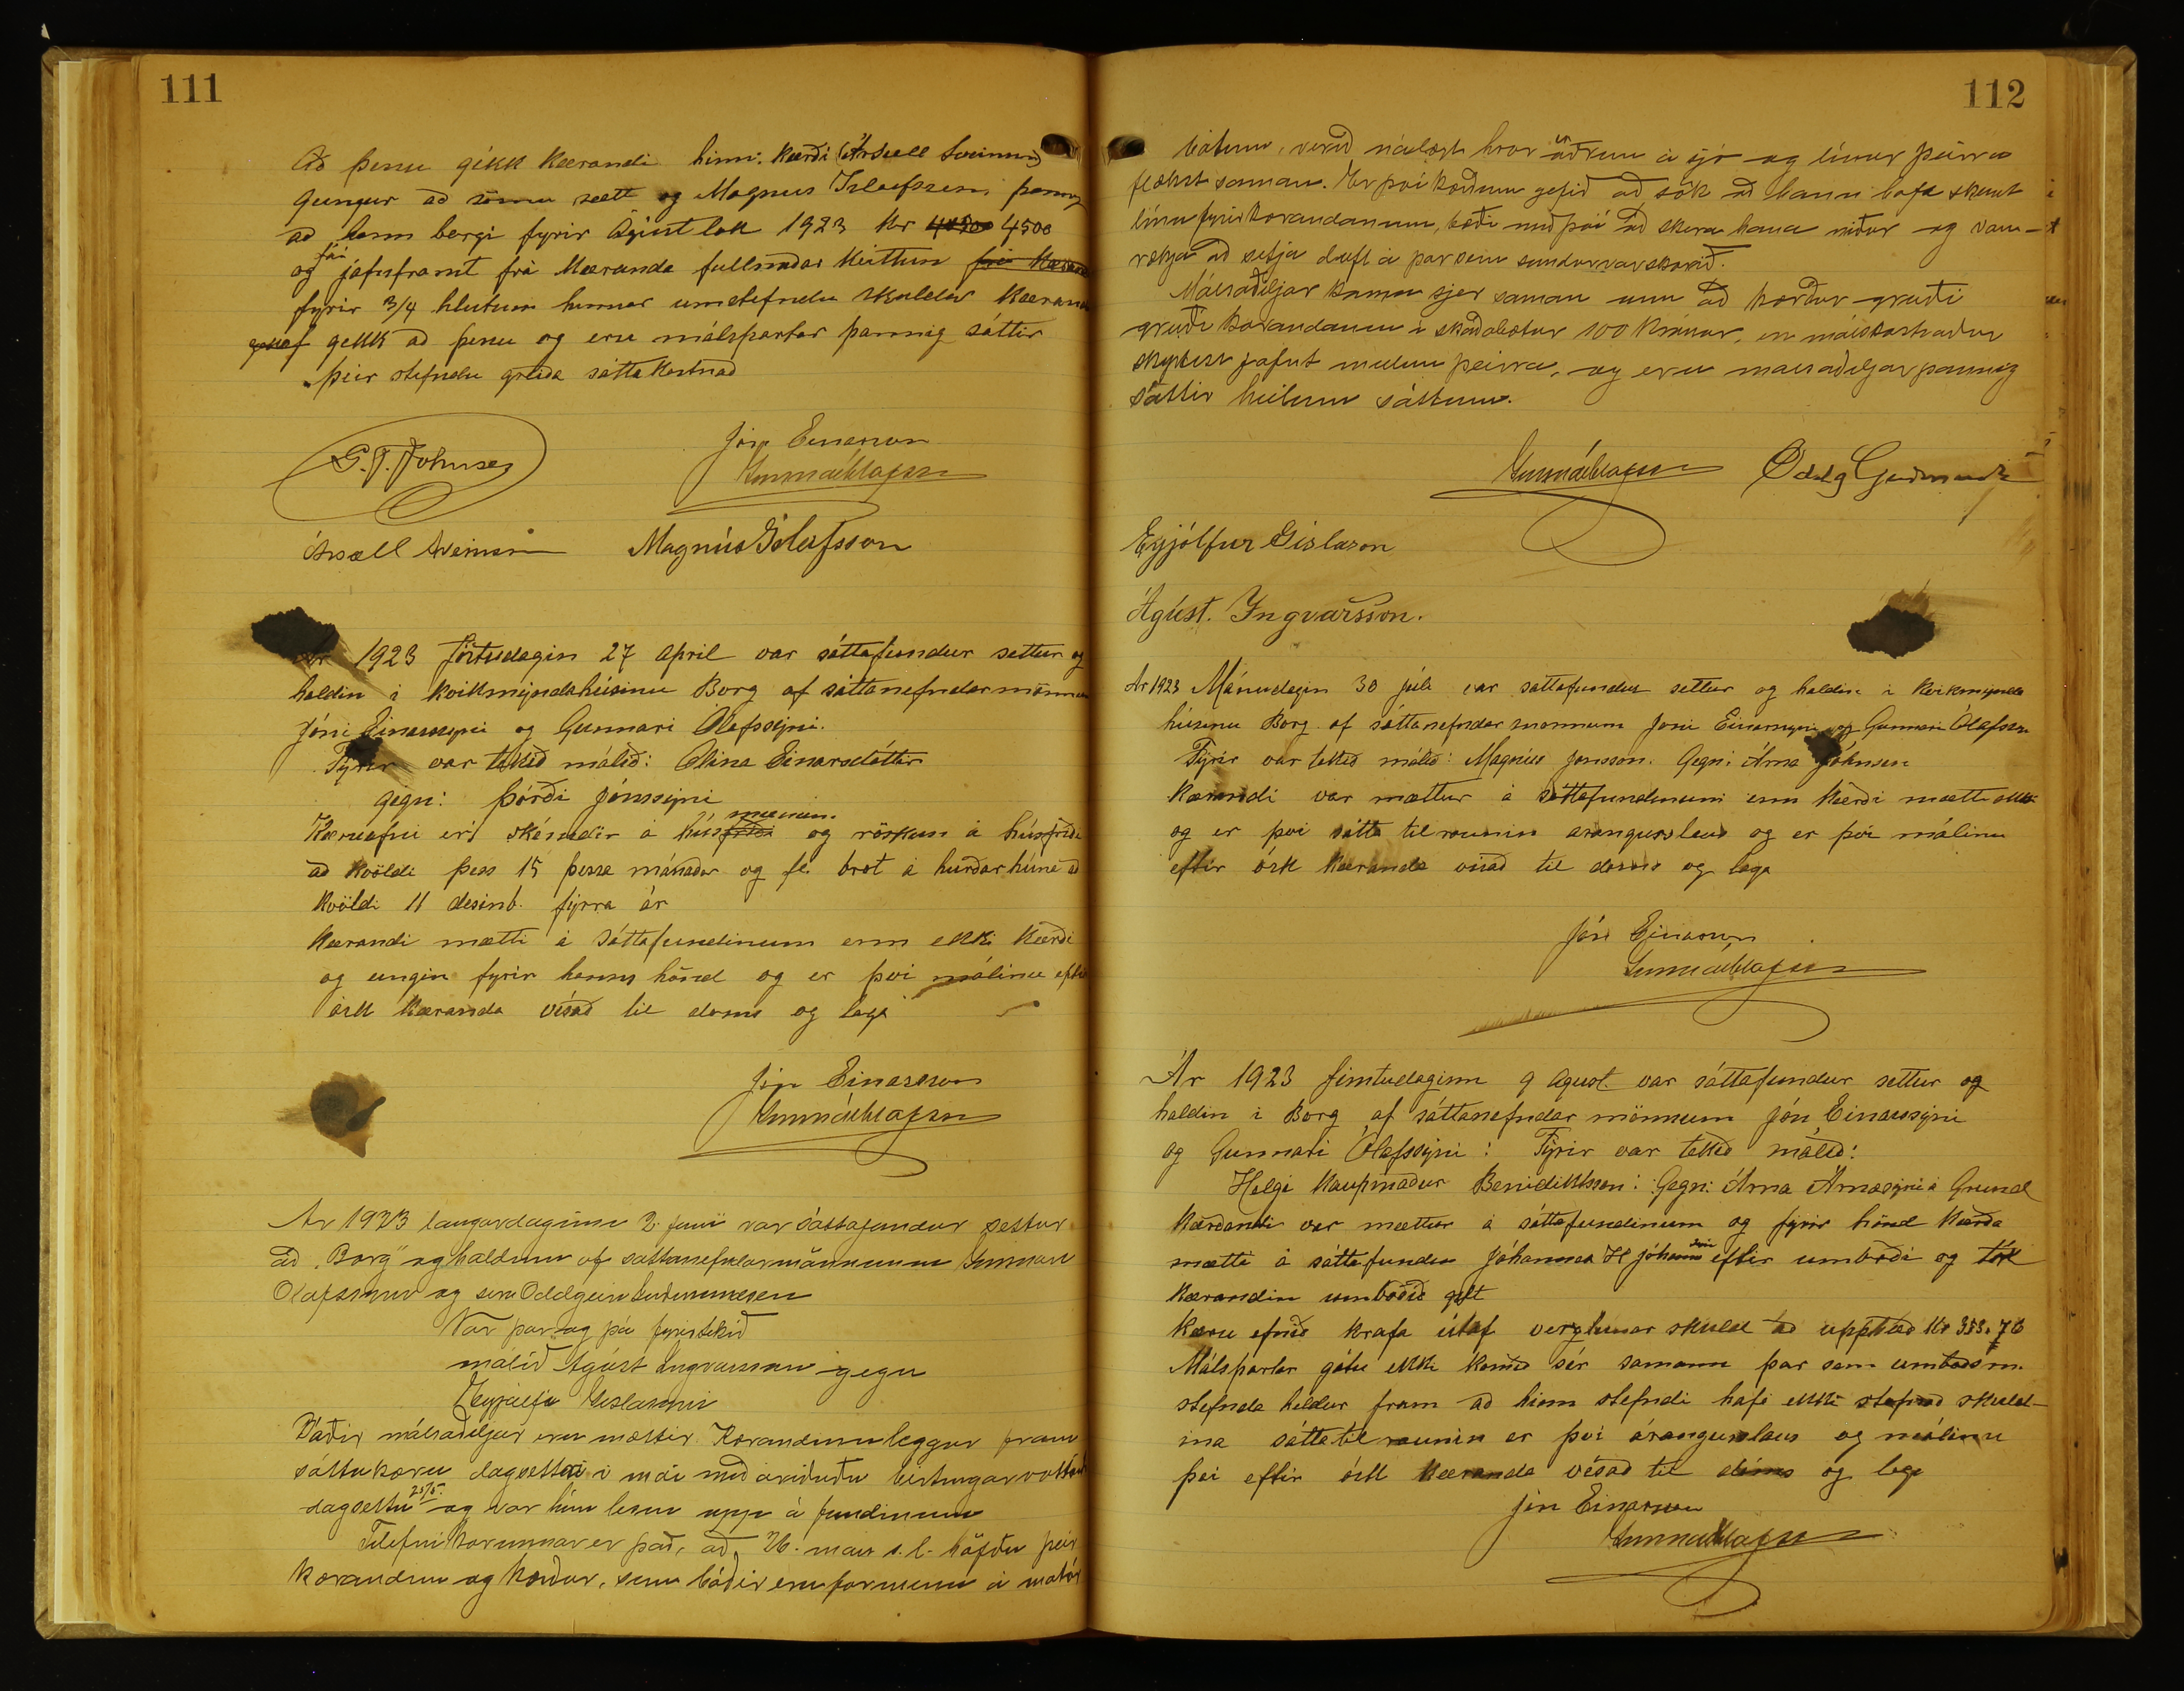 111
Að þenu gékk kærandi hinn kærði Ársæll Sveinsson
gengur að sömu sætt og Magnus Isleifsson þannig
að hann borgi fyrir Ágúst lok 1923 kr 4500
og fái jafnframt frá kæranda fullnaðar kvittun
fyrir 3/4 hlutum hinnar umstefndu skuldar kærandi
gekk að þenu og eru málspartar þannig sáttir
þeir stefndu greiða sátta kostnað
G. J. Johnsen
Jón Einarsson
Gunnar Ólafsson
Ársæll Sveinsson Magnús Ísleifsson
Ár 1923 föstudagin 27 april var sáttafundur settur og
haldin i kvikmyndahúsinu Borg af sáttanefndarmönnum
Jóni Einarssyni og Gunnari Ólafssyni.
Fyrir var tekið málið: Ólina Einarsdóttir
gegn: Þórði Jónssyni
Kæruefni er skémdir á húsmunum og röskun á húsfriði
að kvöldi þess 15 þessa mánaðar og fl. brot á hurðarhúna að
kvöldi 11 desinb. fyrra ár
kærandi mætti á sáttafundinum enn ekki kærði
og eingin fyrir hanns hönd og er því málinu eftir
ósk kæranda vísað til doms og laga
Jón Einarsson
Gunnar Ólafsson
Ar 1923 laugardaginn 2. júní var sáttafundur settur
að "Borg" og haldinn af sáttanefndarmönnunum Gunnari
Olafssyni og sera Oddgeiri Gudmundsen
Var þar og þá fyrirtekið
málið Ágúst Ingvarsson gegn
Eyjólfi Gislasyni
Báðir málsaðiljar eru mættir. Kærandinn leggur fram
sáttakæru dagsetta i mái með áriðuðu birtingarvottorði
dagsettu 25/5. og var hún lesin upp á fundinum
Tilefni kærunnar er það, að 26. mars s.l. höfðu þeir
kærandinn og kærður, sem báðir eru formenn á motór
112
bátum, verið nálægt hvor öðrum á sjó og línur þeirra
flækst saman. Er því kærðum gefið að sök að hann hafi skemt
línu fyrir kærandanum, bæði með því að skera hana niður og van-
rækja að setja duft á þar sem sundur var skorið.
Málsaðiljar koma sjer saman um að kærður greiði
greiði kærandanum i skaðabætur 100 krónur, en málskostnaður
skiptist jafnt milli þeirra, og eru málsaðiljar þannig
sáttir heilum sáttum.
Gunnar Ólafsson Oddg Guðmunds
Eyjólfur Gíslason
Ágúst. Yngvarsson.
Ár 1923 Mánudagin 30 júlí var sáttafundur settur og haldin i kvikmynda
húsinu Borg af sáttanefndar monnum Jóni Einarssyni og Gunnari Ólafssyni
Fyrir var tekið málið: Magnús Jonsson. Gegn: Árna Jóhnsen
Kærandi var mættur á sáttafundinum enn kærði mætti ekki
og er því sátta tilraunin arangurslaus og er því málinu
eftir ósk kæranda vísað til doms og laga
Jón Einarsson
Gunnar Ólafsson
Ár 1923 fimtudaginn 9 Agust var sáttafundur settur og
haldin i Borg af sáttanefndar mönnum Jón Einarssyni
og Gunnari Ólafssyni: Fyrir var tekið málið:
Helgi kaupmaður Benidiktsson: Gegn: Árna Árnasyni á Grund
kærandi var mættur á sáttafundinum og fyrir hönd kærða
mætti á sáttafundin Jóhannes H Jóhannsson eftir umboði og tók
kærandin umboðið gilt
Kæru efnið krafa útaf verzlunar skuld að upphæð kr 383.76
Málspartar gátu ekki komið sér samann þar sem umboðsm.
stefnda heldur fram að hinn stefndi hafi ekki stofnað skuld-
ina sáttatilraunin er því árangurslaus og málinu
því eftir ósk kæranda vísað til dóms og laga
Jón Einarsson
Gunnar Ólafsson